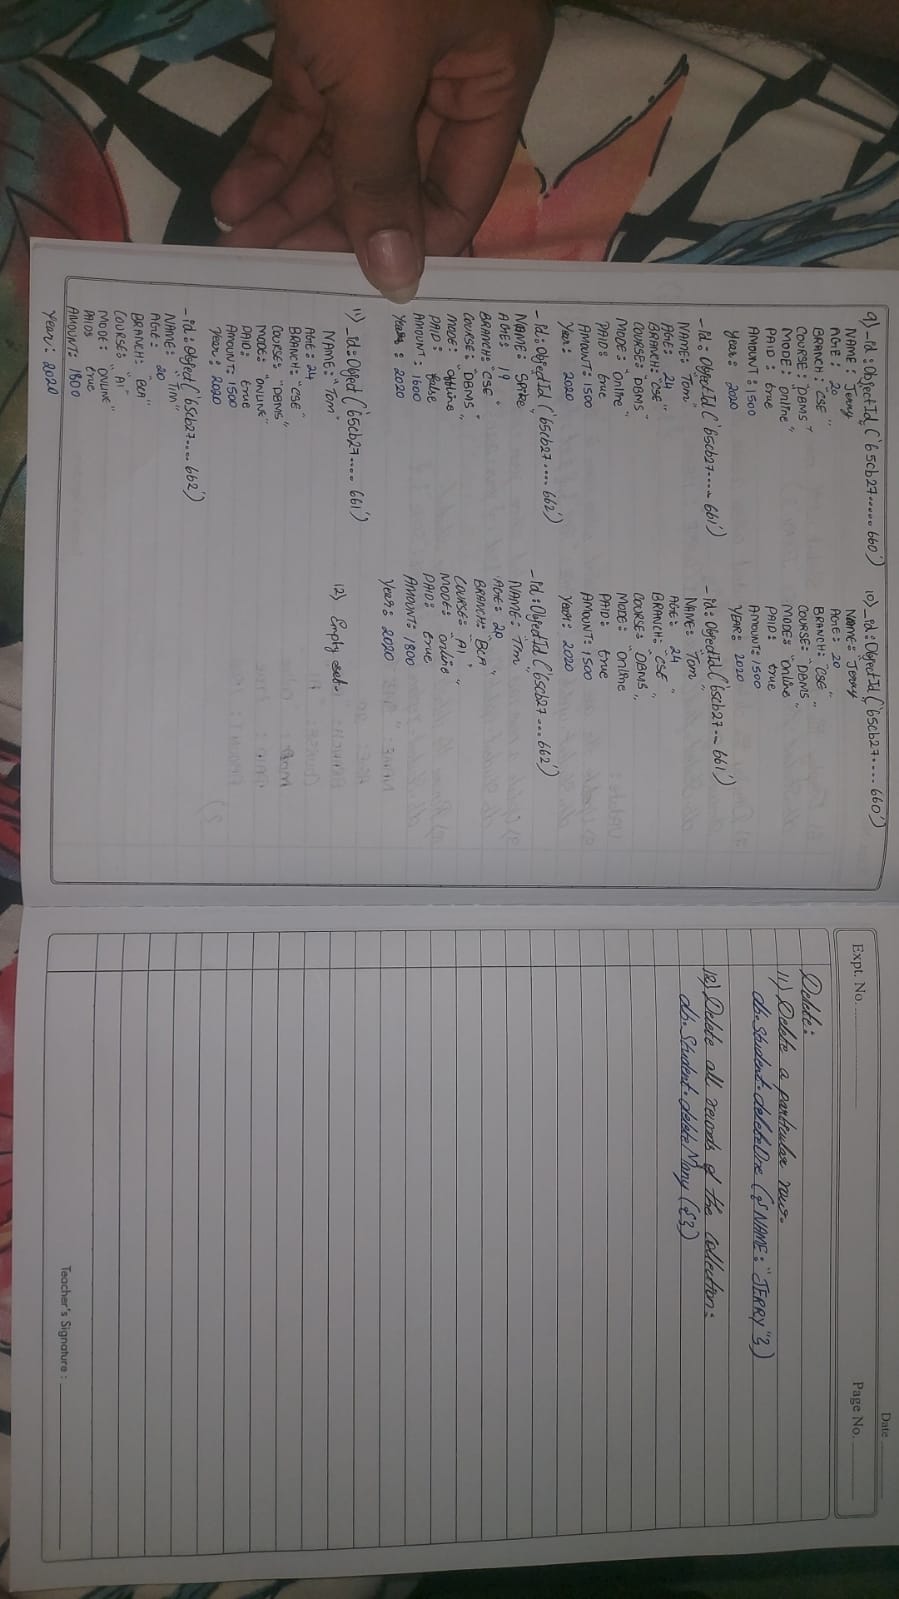 9) _id: ObjectId ('65cb27..... 660')
NAME: "Jerry"
AGE: 20
BRANCH: "CSE"
COURSE: "DBMS"
MODE: "online"
PAID: true
AMOUNT: 1500
Year: 2020
_id: ObjectId ('65cb27..... 661')
NAME: "Tom"
AGE: 24
BRANCH: "CSE"
COURSE: "DBMS"
MODE: "online"
PAID: true
AMOUNT: 1500
Year: 2020
_id: ObjectId ('65cb27.... 662')
NAME: "Spike"
AGE: 19
BRANCH: "CSE"
COURSE: "DBMS"
MODE: "offline"
PAID: false
AMOUNT: 1600
Year: 2020
11) _id: Object ('65cb27.... 661')
NAME: "Tom"
AGE: 24
BRANCH: "CSE"
COURSE: "DBMS"
MODE: "ONLINE"
PAID: true
AMOUNT: 1500
Year: 2020
_id: Object ('65cb27.... 662')
NAME: "Tim"
AGE: 20
BRANCH: "BCA"
COURSE: "AI"
MODE: "ONLINE"
PAID: true
AMOUNT: 1800
Year: 2020
10) _id: ObjectId ('65cb27.... 660')
NAME: "Jerry"
AGE: 20
BRANCH: "CSE"
COURSE: "DBMS"
MODE: "online"
PAID: true
AMOUNT: 1500
YEAR: 2020
_id: ObjectId ('65cb27... 661')
NAME: "Tom"
AGE: 24
BRANCH: "CSE"
COURSE: "DBMS"
MODE: "online"
PAID: true
AMOUNT: 1500
Year: 2020
_id: ObjectId ('65cb27... 662')
NAME: "Tim"
AGE: 20
BRANCH: "BCA"
COURSE: "AI"
MODE: "online"
PAID: true
AMOUNT: 1800
Year: 2020
12) Empty set.
Date
Expt. No.
Page No.
Delete:
11) Delete a particular row.
db.Student.deleteOne ({NAME: "JERRY"})
12) Delete all records of the collection:
db.Student.deleteMany ({})
Teacher's Signature :